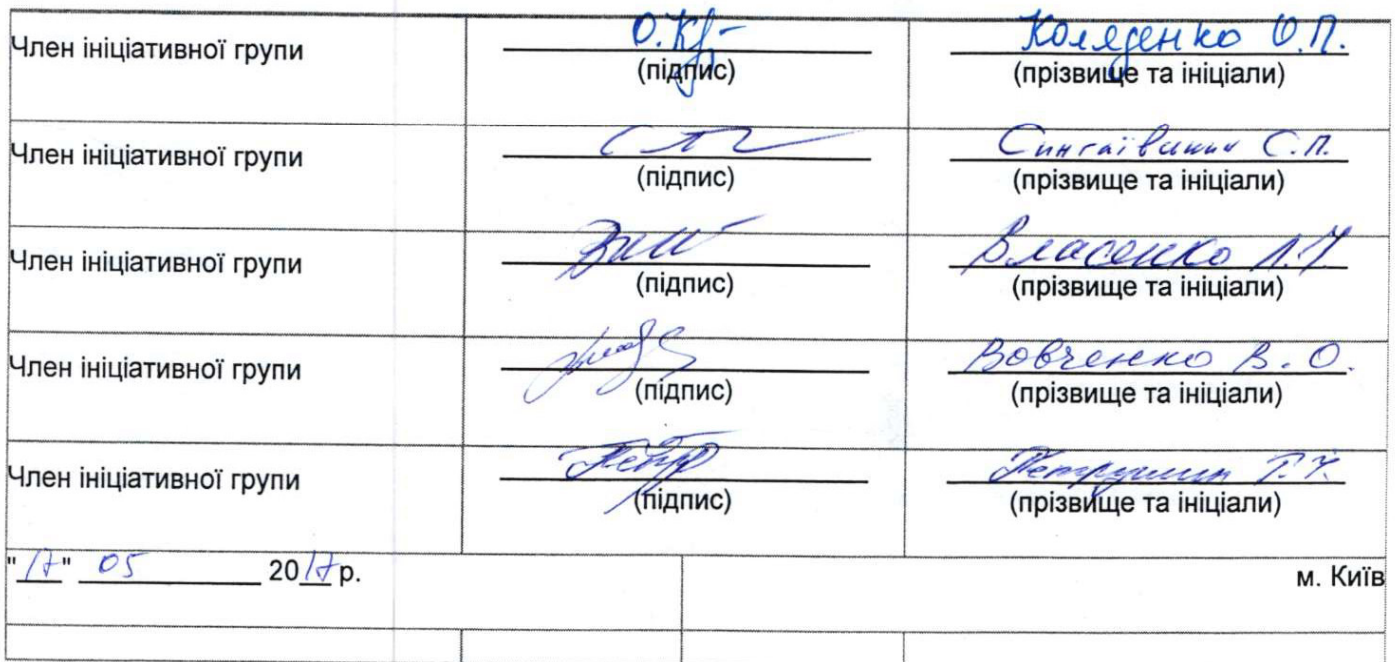 Член ініціативної групи О.К (підпис) Коляденко О.П. (прізвище та ініціали)
Член ініціативної групи (підпис) С.П. (прізвище та ініціали)
Член ініціативної групи (підпис) Власенко (прізвище та ініціали)
Член ініціативної групи (підпис) Вовченко В.О. (прізвище та ініціали)
Член ініціативної групи (підпис) (прізвище та ініціали)
"17" 05 2017р. м. Київ